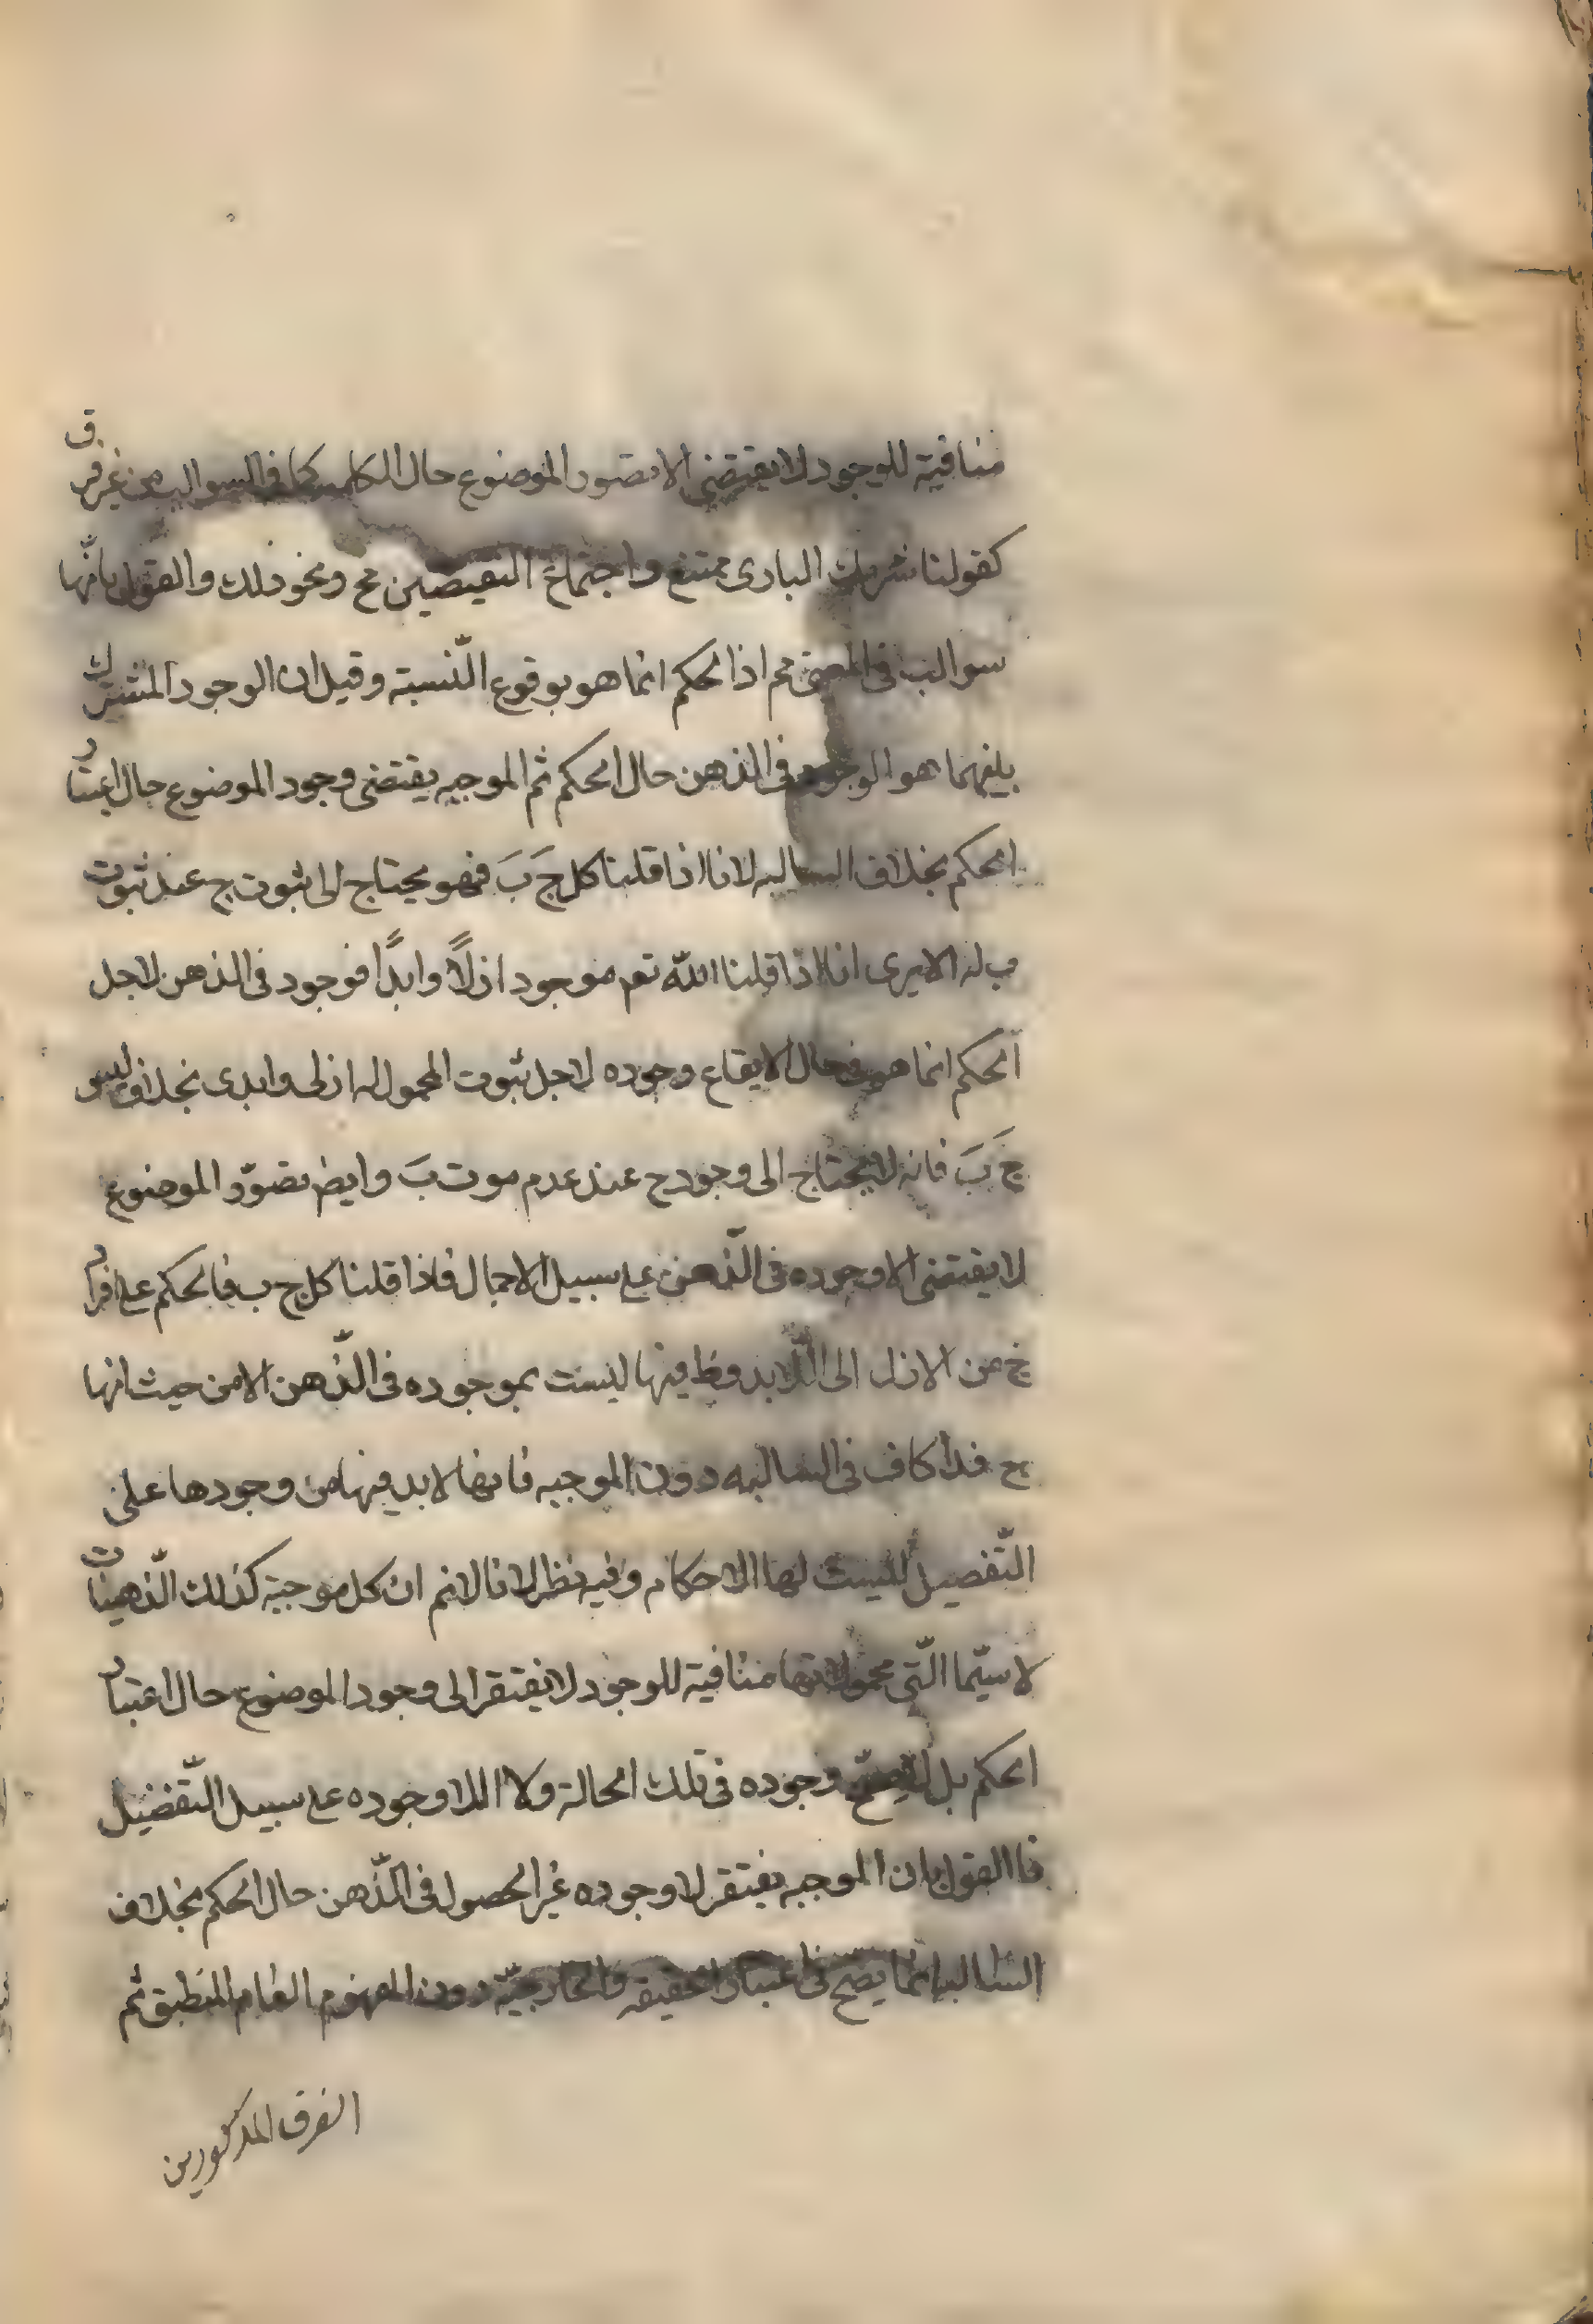 منافية للوجود لا يقتضى الا تصور الموضوع حال الحكم كما فى السوالب من غير فرق
كقولنا شريك البارى ممتنع واجتماع النقيضين مح ونحو ذلك والقول بانّها
سوالب فى المعنى مم اذ الحكم انما هو بوقوع النّسبة وقيل ان الوجود المشترك
بينهما هو الوجود فى الذهن حال الحكم ثم الموجبه يقتضى وجود الموضوع حال اعتبار
الحكم بخلاف السالبه لانا اذا قلنا كل جَ بَ فهو يحتاج الى ثبوت ج عند ثبوت
ب له الا يرى انا اذا قلنا اللّه تعم موجود ازلًا وابدًا فوجود فى الذهن لاجل
الحكم انما هو فى حال الايقاع وجوده لاجل ثبوت المحمول له ازلى وابدى بخلاف ليس
جَ بَ فانه لا يحتاج الى وجود ج عند عدم موت بَ وايض تصوّر الموضوع
لا يقتضى الا وجوده فى الذّهن على سبيل الاجمال فاذا قلنا كل ج ب فالحكم على افراد
ج من الازل الى الابد وظ فيها ليست بموجوده فى الذّهن الا من حيث انها
ج فذا كاف فى السالبه دون الموجبه فانها لا بد فيها من وجودها على
التّفصيل ليست لها الاحكام وفيه نظر لانا لانم ان كل موجبة كذلك الذّهنيات
لا سيّما الّتى محمولاتها منافية للوجود لا يفتقر الى وجود الموضوع حال اعتبار
الحكم بل لا يصحّ وجوده فى تلك الحالة ولا الا وجوده على سبيل التّفضيل
فاالقول بان الموجبه يفتقر لا وجوده غير الحصول فى الذّهن حال الحكم بخلاف
السالبه انما يصح فى اعتبار الحقيقه والخارجيّة دون المفهوم العام المنطبق ثم
الفرق المذكورين